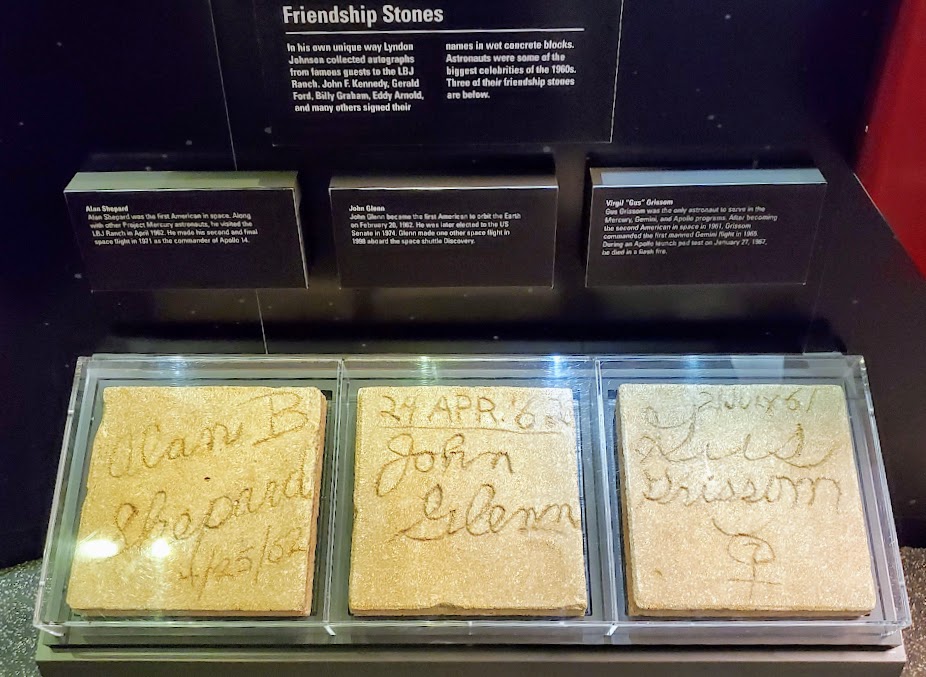 Friendship Stones
In his own unique way Lyndon
Johnson collected autographs
from famous guests to the LBJ
Ranch. John F. Kennedy, Gerald
Ford, Billy Graham, Eddy Arnold,
and many others signed their
names in wet concrete blocks.
Astronauts were some of the
biggest celebrities of the 1960s.
Three of their friendship stones
are below.
Alan Shepard
Alan Shepard was the first American in space. Along
with other Project Mercury astronauts, he visited the
LBJ Ranch in April 1962. He made his second and final
space flight in 1971 as the commander of Apollo 14.
John Glenn
John Glenn became the first American to orbit the Earth
on February 20, 1962. He was later elected to the US
Senate in 1974. Glenn made one other space flight in
1998 aboard the space shuttle Discovery.
Virgil "Gus" Grissom
Gus Grissom was the only astronaut to serve in the
Mercury, Gemini, and Apollo programs. After becoming
the second American in space in 1961, Grissom
commanded the first manned Gemini flight in 1965.
During an Apollo launch pad test on January 27, 1967,
he died in a flash fire.
Alan B
Shepard
4/25/62
24 APR. '62
John
Glenn
21 JULY 61
Gus
Grissom